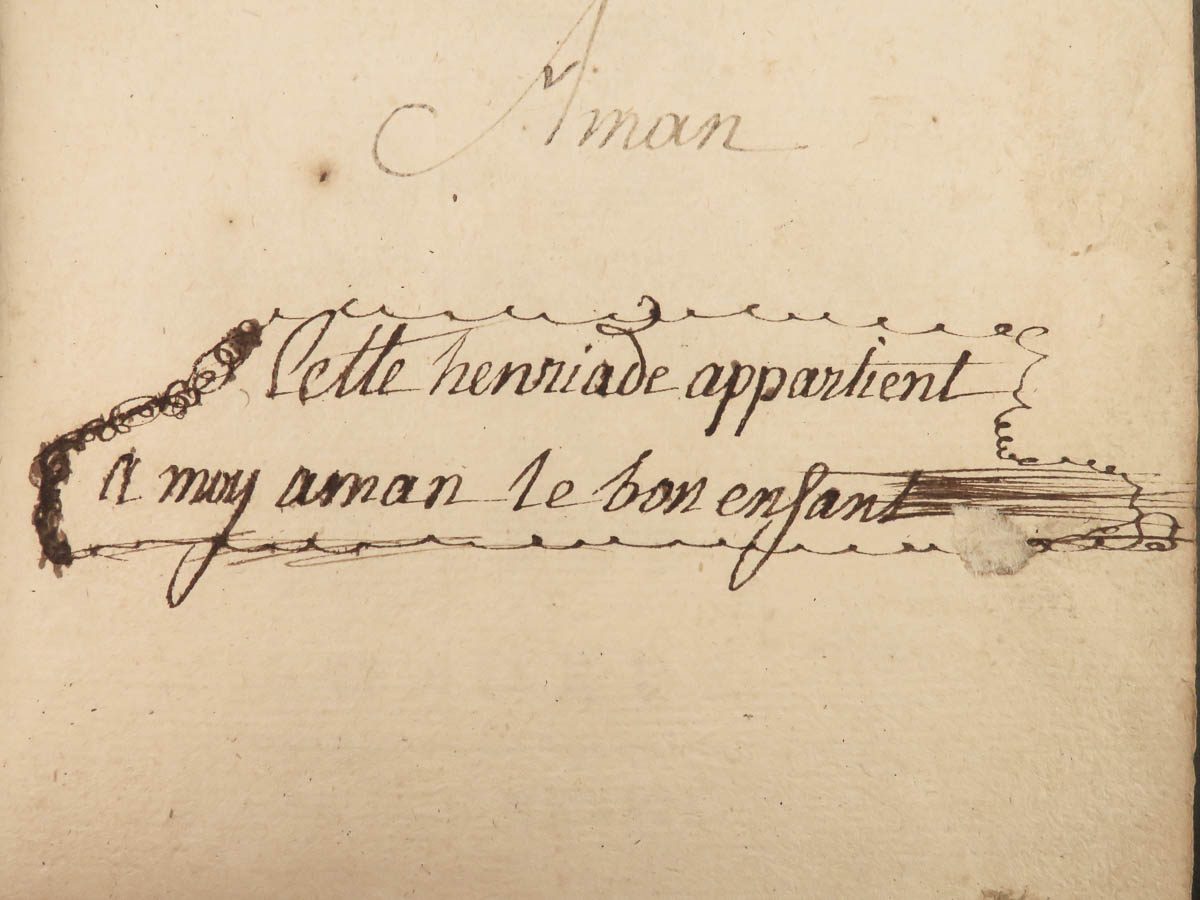 Aman
Cette henriade appartient
A moy aman le bon enfant